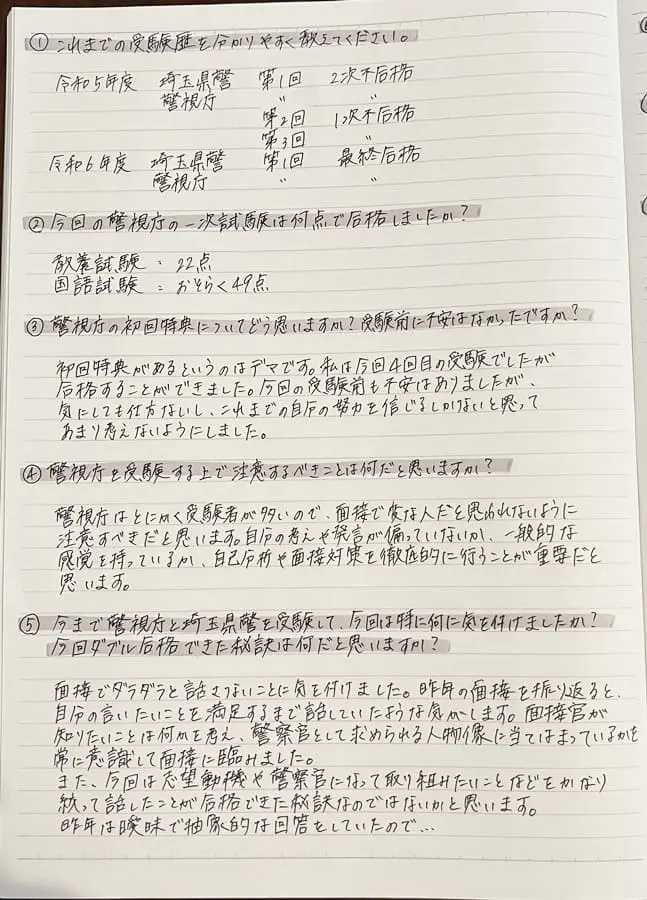 ① これまでの受験歴を分かりやすく教えてください。
令和5年度 埼玉県警 第1回 2次不合格
警視庁 〃 〃
第2回 1次不合格
第3回 〃
令和6年度 埼玉県警 第1回 最終合格
警視庁 〃 〃
② 今回の警視庁の一次試験は何点で合格しましたか?
教養試験 : 22点
国語試験 : おそらく49点
③ 警視庁の初回特典についてどう思いますか?受験前に不安はなかったですか?
初回特典があるというのはデマです。私は今回4回目の受験でしたが
合格することができました。今回の受験前も不安はありましたが、
気にしても仕方ないし、これまでの自分の努力を信じるしかないと思って
あまり考えないようにしました。
④ 警視庁を受験する上で注意するべきことは何だと思いますか?
警視庁はとにかく受験者が多いので、面接で変な人だと思われないように
注意すべきだと思います。自分の考えや発言が偏っていないか、一般的な
感覚を持っているか、自己分析や面接対策を徹底的に行うことが重要だと
思います。
⑤ 今まで警視庁と埼玉県警を受験して、今回は特に何に気を付けましたか?
今回ダブル合格できた秘訣は何だと思いますか?
面接でダラダラと話さないことに気を付けました。昨年の面接を振り返ると、
自分の言いたいことを満足するまで話していたような気がします。面接官が
知りたいことは何かを考え、警察官として求められる人物像に当てはまっているかを
常に意識して面接に臨みました。
また、今回は志望動機や警察官になって取り組みたいことなどをかなり
絞って話したことが合格できた秘訣なのではないかと思います。
昨年は曖昧で抽象的な回答をしていたので…